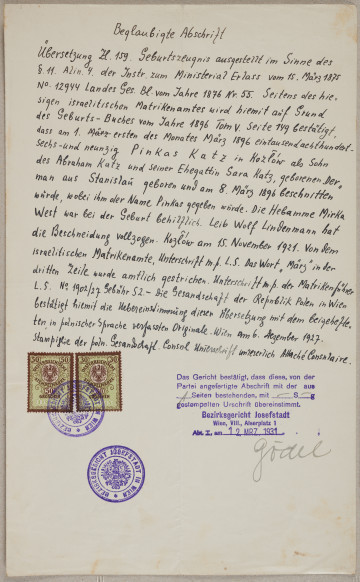 Beglaubigte Abschrift
Übersetzung Zl. 159. Geburtszeugnis ausgestellt im Sinne des
§. 11. Alin. 4. der Instr. zum Ministerial Erlass vom 15. März 1875
No. 12944 Landes Ges. Bl. vom Jahre 1876 Nr. 55. Seitens des hie-
sigen israelitischen Matrikenamtes wird hiemit auf Grund
des Geburts-Buches vom Jahre 1896 Tom V. Seite 149 bestätigt,
dass am 1. März ersten des Monates März 1896 eintausendachthundert-
sechs-und neunzig Pinkas Katz in Kozłów als Sohn
des Abraham Katz und seiner Ehegattin Sara Katz, geborenen Der„
man aus Stanislau geboren und am 8. März 1896 beschnitten
wurde, wobei ihm der Name Pinkas gegeben wurde. Die Hebamme Mirka
West war bei der Geburt behilflich. Leib Wolf Lindenmann hat
die Beschneidung vollzogen. Kozłów am 15. November 1921. Von dem
israelitischen Matrikenamte, Unterschrift m.p. L.S. Das Wort „März" in der
dritten Zeile wurde amtlich gestrichen. Unterschrift m.p. der Matrikenführer
L.S. No 1902/27 Gebühr 52.- Die Gesandschaft der Republik Polen in Wien
bestätigt hiemit die Uebereinstimmung dieser Übersetzung mit dem beigehefte-
ten, in polnischer Sprache verfassten Originale. Wien am 6. Dezember 1927.
Stampiglie der poln. Gesandschaft. Consul Unterschrift unleserlich Attaché Consulaire.
50 50
Das Gericht bestätigt, dass diese, von der
Partei angefertigte Abschrift mit der aus
Seiten bestehenden, mit S g
gestempelten Urschrift übereinstimmt.
Bezirksgericht Josefstadt
Wien, VIII., Alserplatz 1
Abt. I, am 12. MRZ. 1931
Gödel
BEZIRKSGERICHT JOSEFSTADT IN WIEN